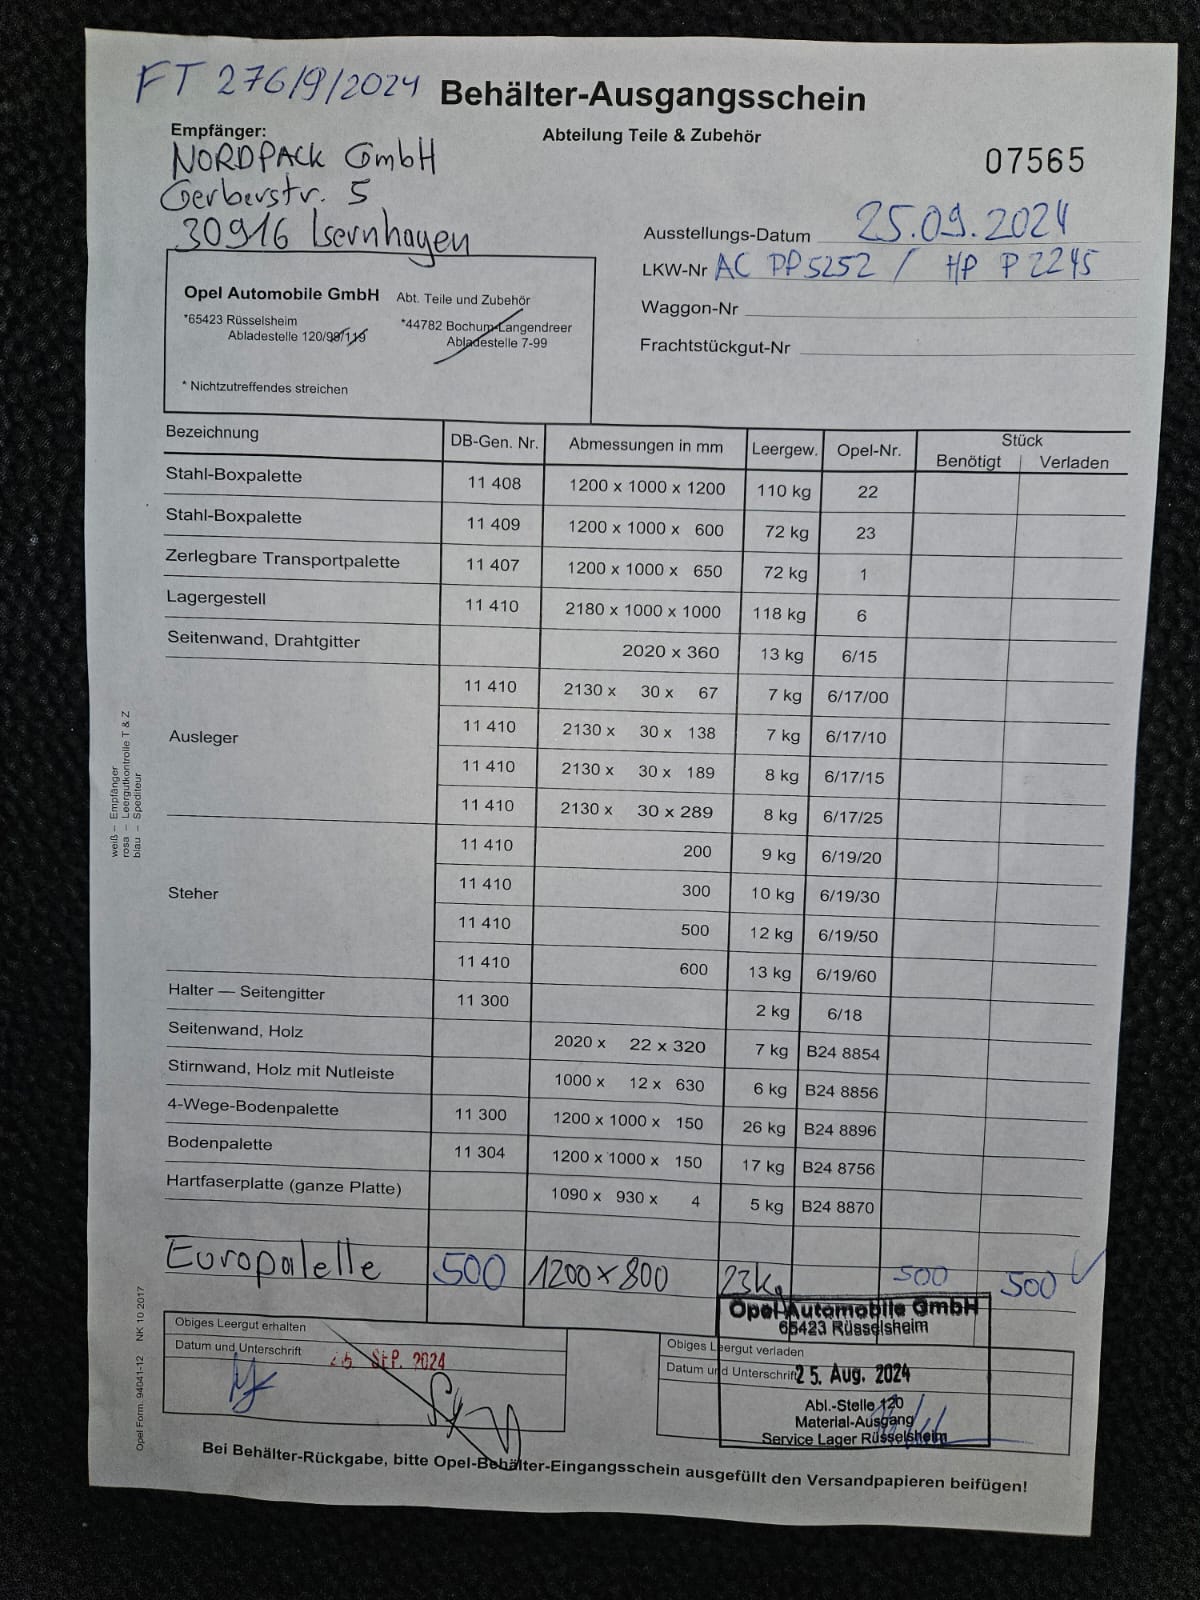 FT 276/9/2024
Behälter-Ausgangsschein
Abteilung Teile & Zubehör
07565
Empfänger:
NORDPACK GmbH
Gerberstr. 5
30916 Isernhagen
Ausstellungs-Datum 25.09.2024
LKW-Nr AC PP5252 / HP P 2245
Waggon-Nr
Frachtstückgut-Nr
Opel Automobile GmbH Abt. Teile und Zubehör
*65423 Rüsselsheim *44782 Bochum-Langendreer
Abladestelle 120/99/119 Abladestelle 7-99
* Nichtzutreffendes streichen
Bezeichnung DB-Gen. Nr. Abmessungen in mm Leergew. Opel-Nr. Stück
Benötigt Verladen
Stahl-Boxpalette 11 408 1200 x 1000 x 1200 110 kg 22
Stahl-Boxpalette 11 409 1200 x 1000 x 600 72 kg 23
Zerlegbare Transportpalette 11 407 1200 x 1000 x 650 72 kg 1
Lagergestell 11 410 2180 x 1000 x 1000 118 kg 6
Seitenwand, Drahtgitter 2020 x 360 13 kg 6/15
Ausleger
11 410 2130 x 30 x 67 7 kg 6/17/00
11 410 2130 x 30 x 138 7 kg 6/17/10
11 410 2130 x 30 x 189 8 kg 6/17/15
11 410 2130 x 30 x 289 8 kg 6/17/25
Steher
11 410 200 9 kg 6/19/20
11 410 300 10 kg 6/19/30
11 410 500 12 kg 6/19/50
11 410 600 13 kg 6/19/60
Halter — Seitengitter 11 300 2 kg 6/18
Seitenwand, Holz 2020 x 22 x 320 7 kg B24 8854
Stirnwand, Holz mit Nutleiste 1000 x 12 x 630 6 kg B24 8856
4-Wege-Bodenpalette 11 300 1200 x 1000 x 150 26 kg B24 8896
Bodenpalette 11 304 1200 x 1000 x 150 17 kg B24 8756
Hartfaserplatte (ganze Platte) 1090 x 930 x 4 5 kg B24 8870
Europalelle 500 1200 x 800 23kg 500 500
weiß – Empfänger
rosa – Leergutkontrolle T & Z
blau – Spediteur
Opel Form. 94041-12 NK 10 2017
Obiges Leergut erhalten
Datum und Unterschrift
25 SEP. 2024
Obiges Leergut verladen
Datum und Unterschrift
Opel Automobile GmbH
65423 Rüsselsheim
25. Aug. 2024
Abl.-Stelle 120
Material-Ausgang
Service Lager Rüsselsheim
Bei Behälter-Rückgabe, bitte Opel-Behälter-Eingangsschein ausgefüllt den Versandpapieren beifügen!